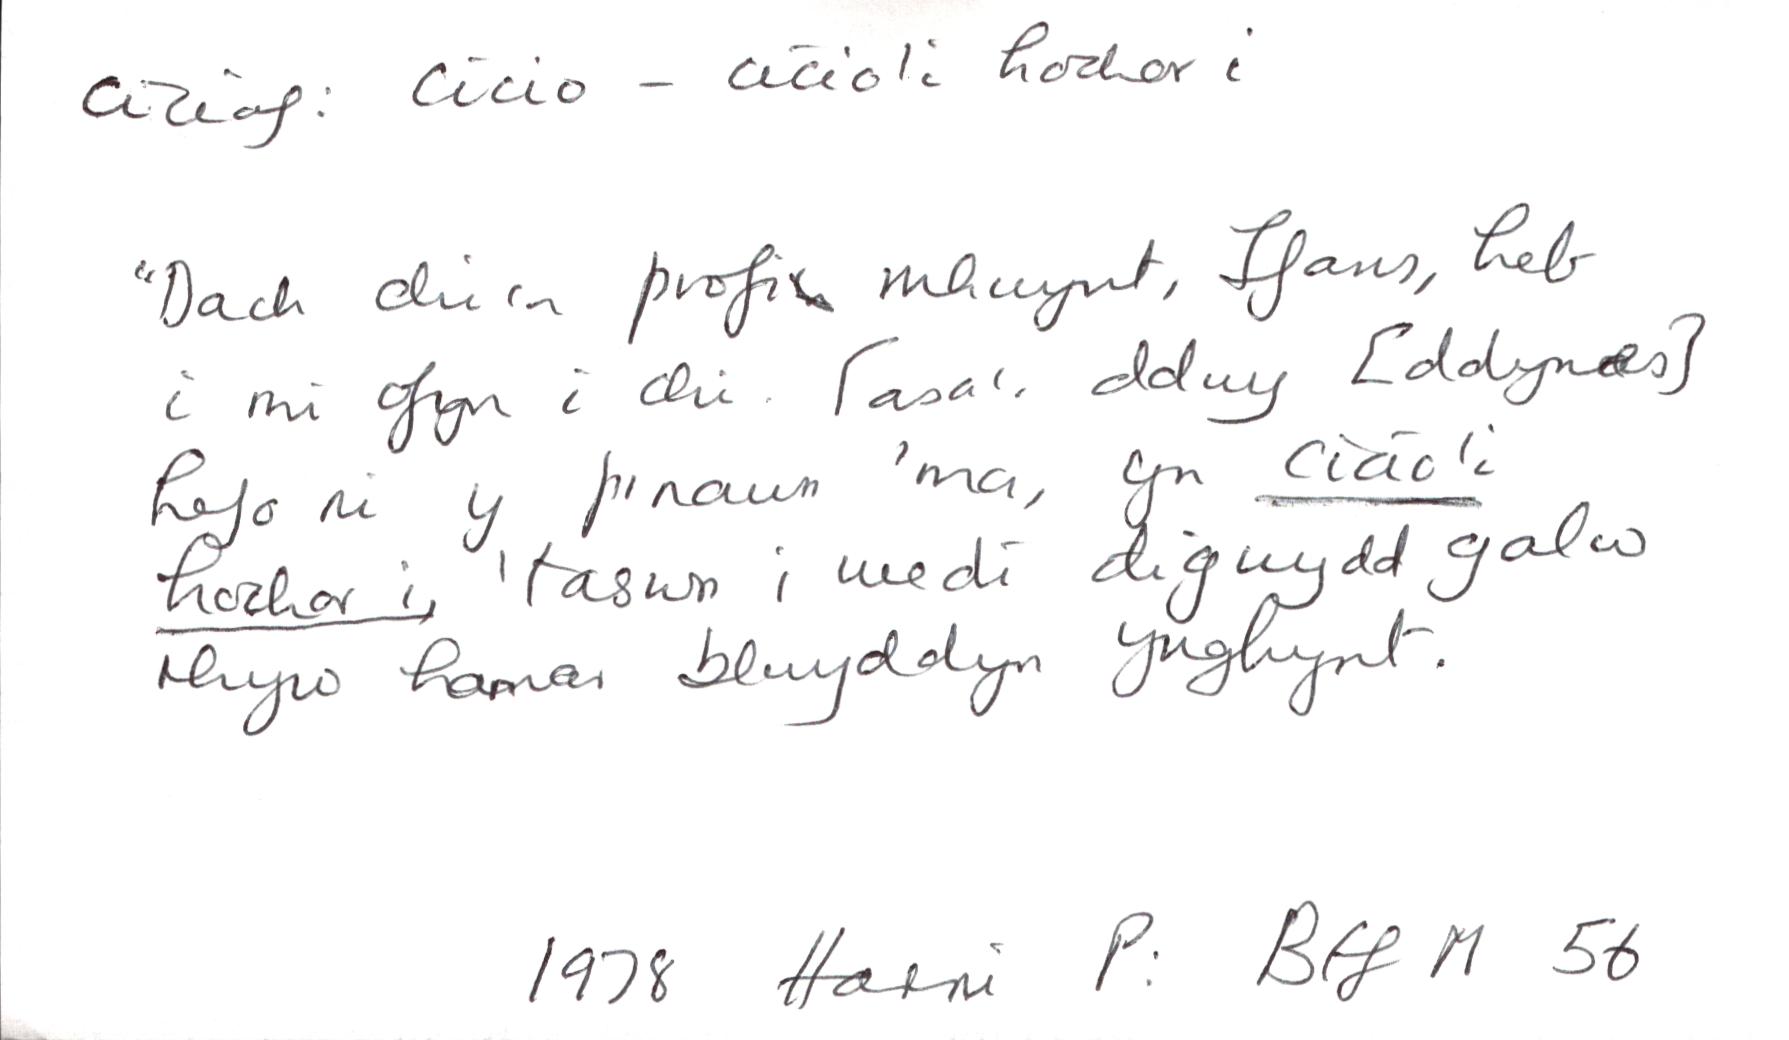 ciciaf: cicio – cicio'i hochor i
"Dach chi'n profi mhwynt, Ifans, heb
i mi ofyn i chi. Fasa'r ddwy [ddynes]
hefo ni y pnawn 'ma, yn cicio'i
hochor i, 'taswn i wedi digwydd galw
rhyw hanner blwyddyn ynghynt.
1978 Harri P: M 56